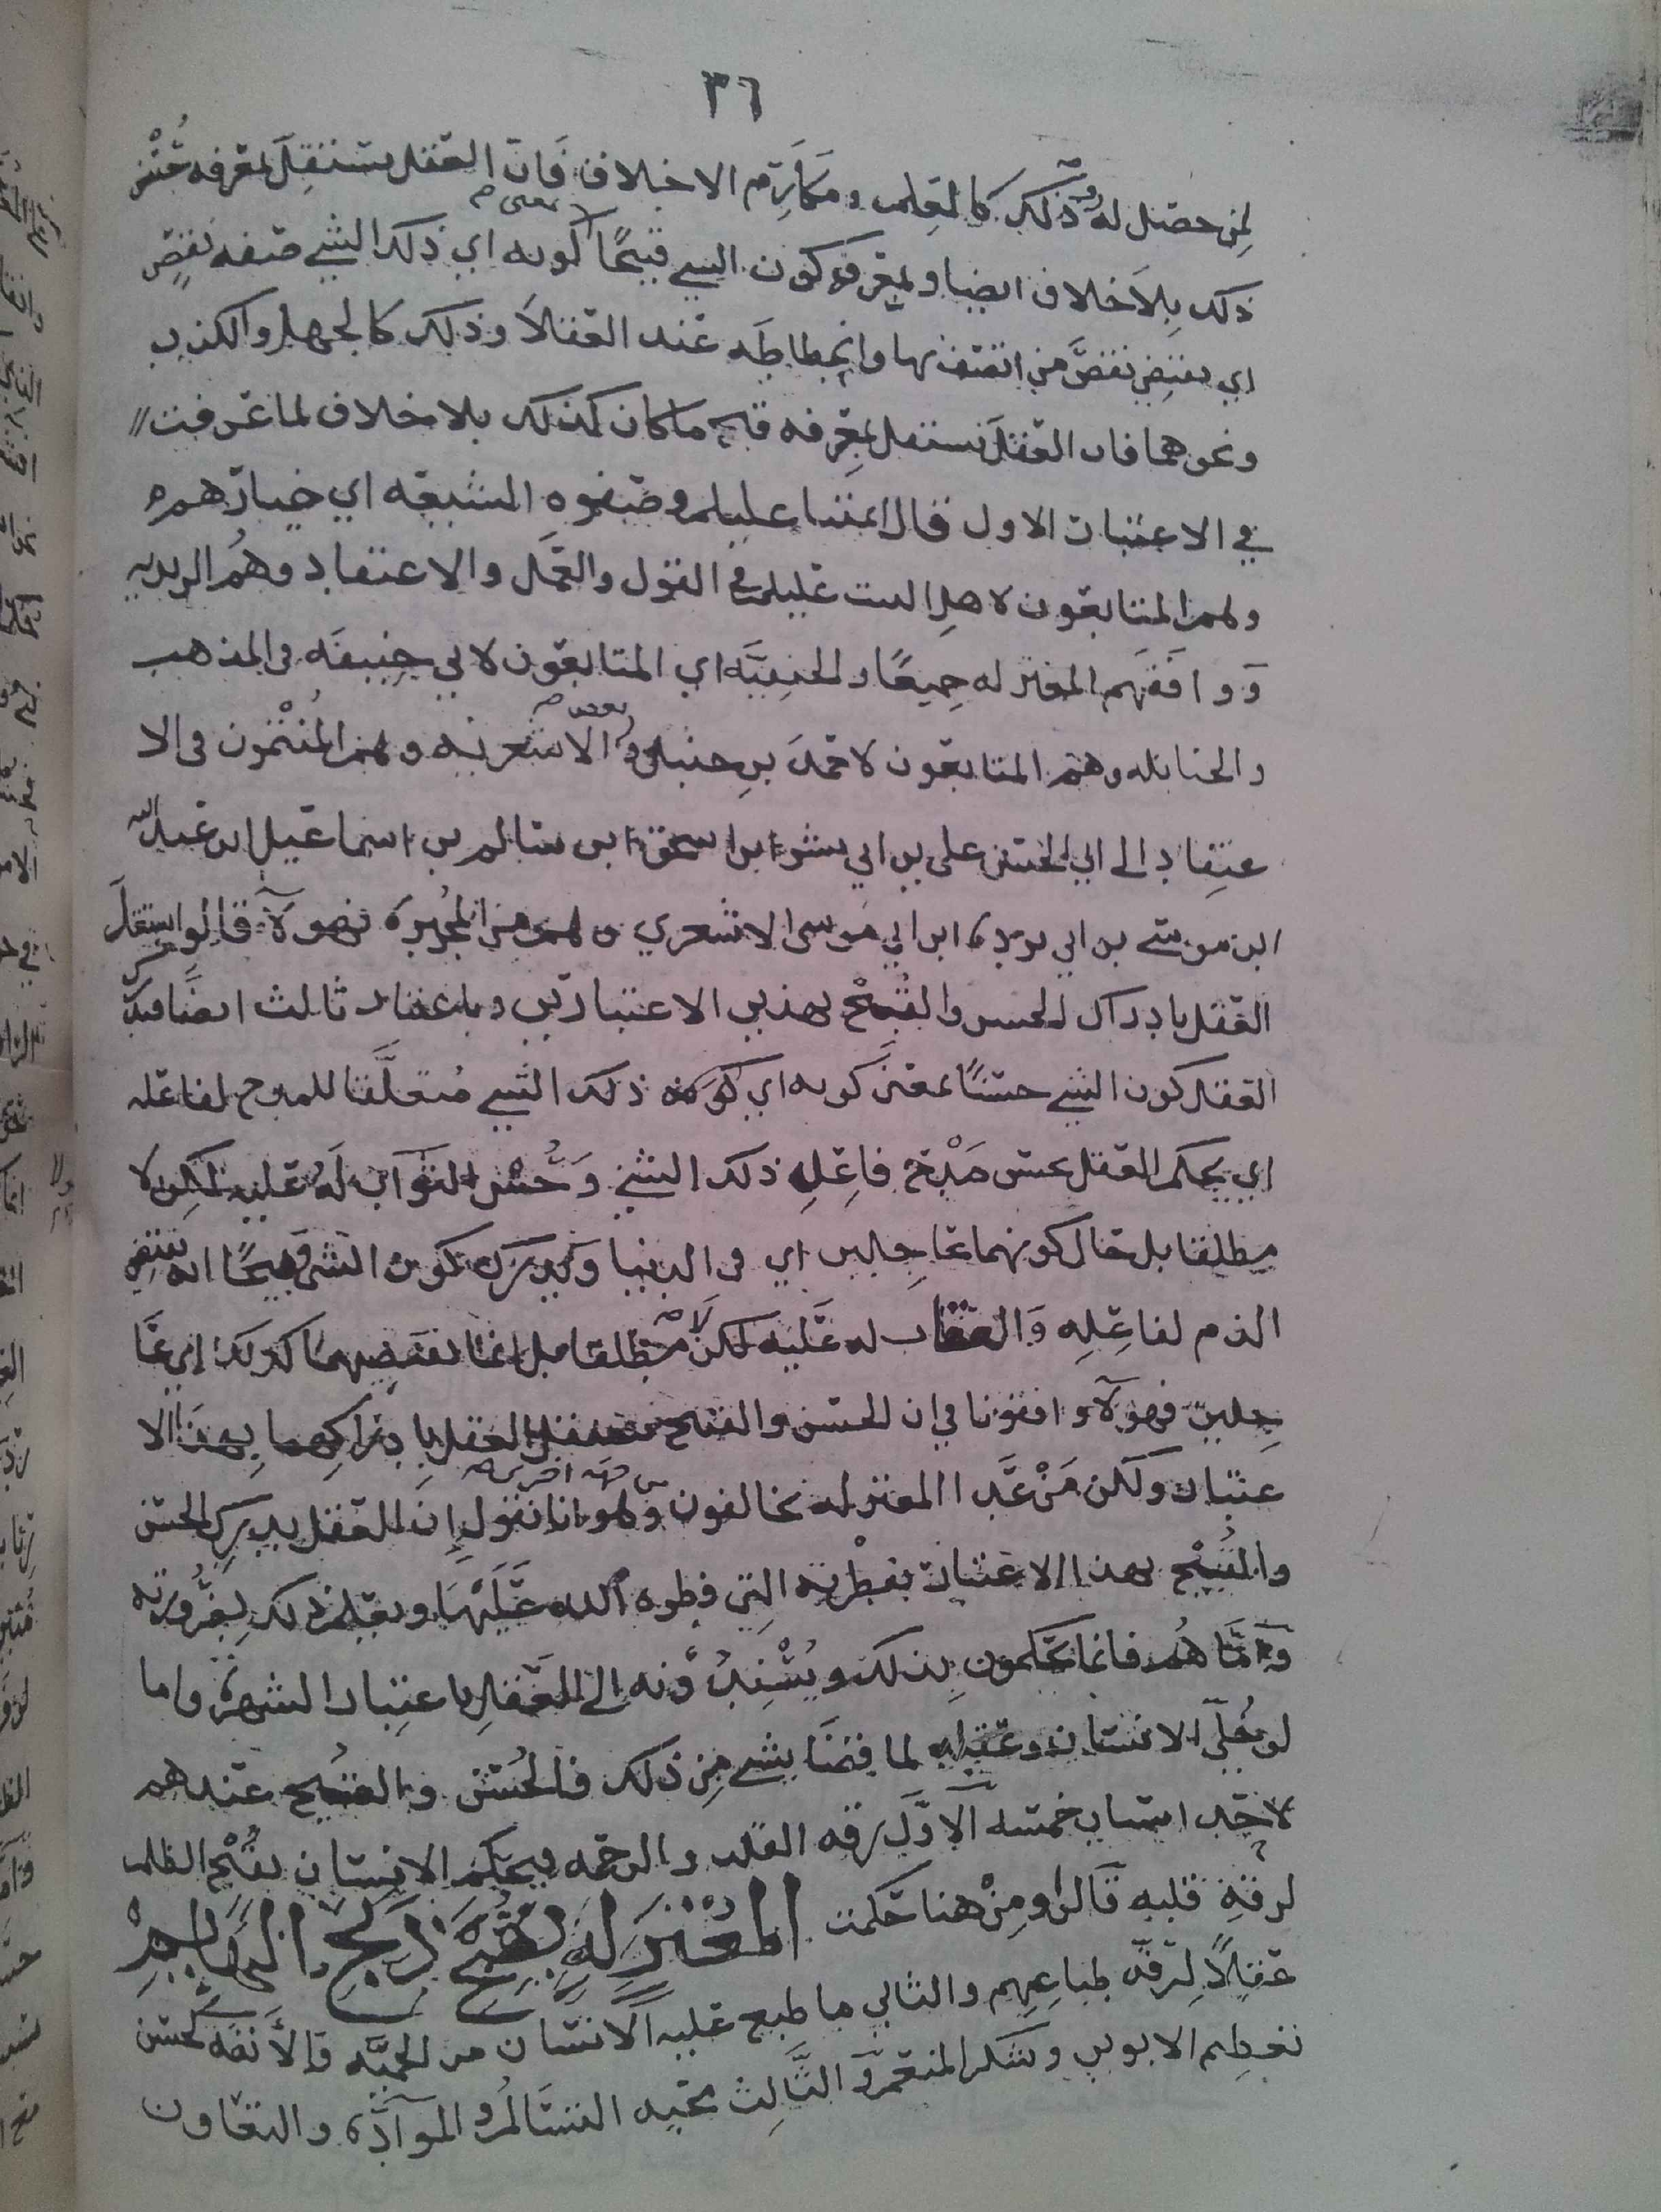 ٣٦
لمن حصل له وذلك كالعلم ومكارم الاخلاق فان العقل يستقل بمعرفه حسن
ذلك بلا خلاف ايضا و بمعرفه كون الشي قبيحا بمعنى كونه اي ذلك الشي صفه نقص
اي يقتضي نقص من اتصف بها وانحطاطه عند العقلا وذلك كالجهل والكذب
ونحوهما فان العقل يستقل بمعرفه قبح ما كان كذلك بلا خلاف لما عرفت
في الاعتبار الاول قال ائمتنا عليلم وصفوه الشيعه اي خيارهم
وهم المتابعون لاهل البيت عليلم في القول والعمل والاعتقاد وهم الزيديه
ووافقهم المعتزله جميعا والحنفيه اي المتابعون لابي حنيفه في المذهب
والحنابله وهم المتابعون لاحمد بن حنبل وبعض الاشعريه وهم المنتمون في الا
عتقاد الى ابي الحسن علي بن ابي بشر ابن اسحق ابن سالم بن اسماعيل ابن عبدالله
ابن موسى بن ابي بردة ابن ابي موسى الاشعري وهم من المجبره فهولآ قالوا يستقل
العقل بادراك الحسن والقبح بهذين الاعتبارين وباعتبار ثالث ايضا فيدرك
العقل كون الشي حسنا بمعنى كونه اي كون ذلك الشي متعلقا للمدح لفاعله
اي يحكم العقل بحسن مدح فاعل ذلك الشي وحسن الثواب له عليه لكن لا
مطلقا بل حال كونهما عاجلين اي في الدنيا ويدرك كون الشي قبيحا انه يقتضي
الذم لفاعله والعقاب له عليه لكن لا مطلقا بل انما يقتضيهما كذلك اي عا
جلين فهولآ وافقونا في ان الحسن والقبح يستقل العقل بادراكهما بهذا الا
عتبار ولكن من عدا المعتزله يخالفون من جهه اخرى وهو انا نقول ان العقل يدرك الحسن
والقبح بهذا الاعتبار بفطرته التي فطره الله عليها ويعلم ذلك بضرورته
واما هم فانما يحكمون بذلك ويسندونه الى العقل باعتبار الشهرة واما
لو خلي الانسان وعقله لما قضا بشي من ذلك فالحسن والقبح عندهم
لاحد اسباب خمسه الآول رقه القلب والرحمه فيحكم الانسان بقبح الظلم
لرقة قلبه قالوا ومن هنا حكمت المعتزلة بقبح ذبح البهايم
عقلا لرقه طباعهم والثاني ما طبع عليه الانسان من الحميه والأنفه كحسن
تعظيم الابوين وشكر المنعم والثالث محبه التسالم والموآدة والتعاون